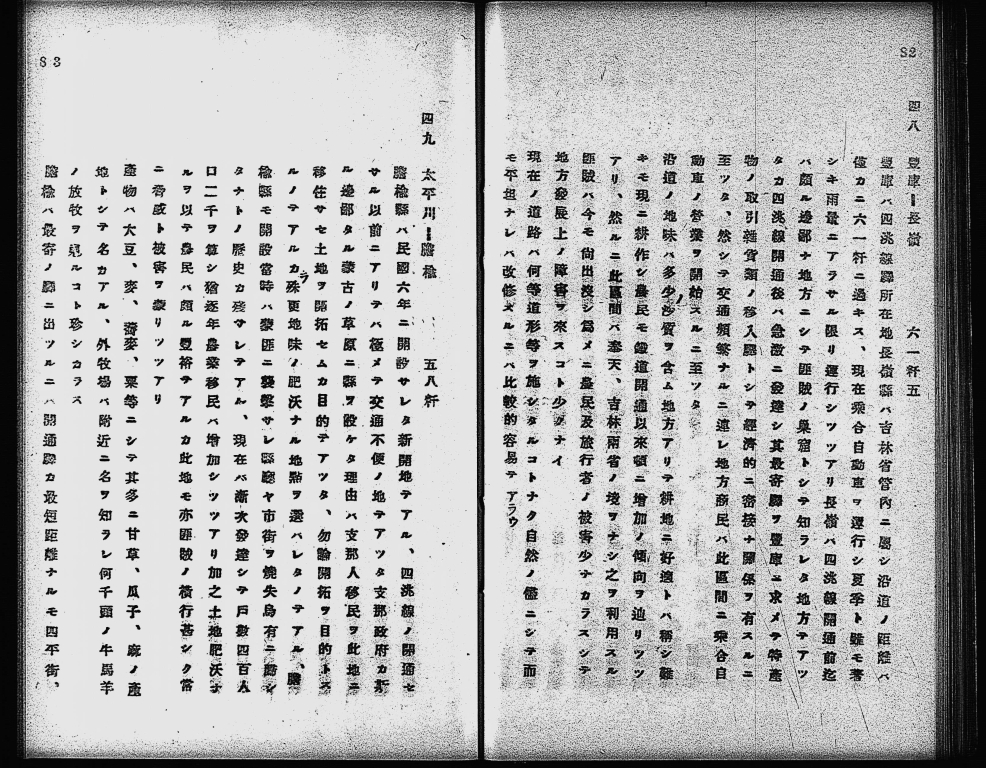 82
四八 豐庫—長嶺 六一粁五
豐庫ハ四洮線驛所在地長嶺縣ハ吉林省管內ニ屬シ沿道ノ距離ハ
僅カニ六一粁ニ過キス、現在乘合自動車ヲ運行シ夏季ト雖モ著
シキ雨量ニアラサル限リ運行シツツアリ長嶺ハ四洮線開通前迄
ハ頗ル邊鄙ナ地方ニシテ匪賊ノ巢窟トシテ知ラレタ地方テアツ
タカ四洮線開通後ハ急激ニ發達シ其最寄驛ヲ豐庫ニ求メテ特產
物ノ取引雜貨類ノ移入驛トシテ經濟的ニ密接ナ關係ヲ有スルニ
至ツタ、然シテ交通頻繁ナルニ連レ地方商民ハ此區間ニ乘合自
動車ノ營業ヲ開始スルニ至ツタ
沿道ノ地味ハ多少沙質ヲ含ム地方アリテ耕地ニ好適トハ稱シ難
キモ現ニ耕作シ農民モ鐵道開通以來頓ニ增加ノ傾向ヲ辿リツツ
アリ、然ルニ此區間ハ奉天、吉林兩省ノ境ヲナシ之ヲ利用スル
匪賊ハ今モ尙出沒シ爲メニ農民及旅行者ノ被害少ナカラスシテ
地方發展上ノ障害ヲ來スコト少クナイ
現在ノ道路ハ何等道形等ヲ施シタルコトナク自然ノ儘ニシテ而
モ平坦ナレハ改修スルニハ比較的容易テアラウ
83
四九 太平川—瞻楡 五八粁
瞻楡縣ハ民國六年ニ開設サレタ新開地テアル、四洮線ノ開通セ
サル以前ニアリテハ極メテ交通不便ノ地テアツタ支那政府カ斯
ル邊鄙タル蒙古ノ草原ニ縣ヲ設ケタ理由ハ支那人移民ヲ此地ニ
移住サセ土地ヲ開拓セムカ目的テアツタ、勿論開拓ヲ目的トス
ルノテアルカラ殊更地味ノ肥沃ナル地點ヲ選ハレタノテアル、瞻
楡縣モ開設當時ハ蒙匪ニ襲擊サレ縣廳ヤ市街ヲ燒失烏有ニ歸シ
タナトノ歷史カ殘サレテアル、現在ハ漸次發達シテ戶數四百人
口二千ヲ算シ猶逐年農業移民ハ增加シツツアリ加之土地肥沃ナ
ルヲ以テ農民ハ頗ル豐裕テアルカ此地モ亦匪賊ノ橫行甚シク常
ニ脅威ト被害ヲ蒙リツツアリ
產物ハ大豆、麥、蕎麥、粟等ニシテ其多ニ甘草、瓜子、麻ノ產
地トシテ名カアル、外牧場ハ附近ニ名ヲ知ラレ何千頭ノ牛馬羊
ノ放牧ヲ見ルコト珍シカラス
瞻楡ハ最寄ノ驛ニ出ツルニハ開通驛カ最短距離ナルモ四平街、